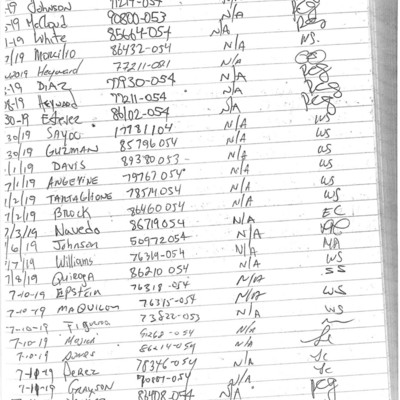 -19 Johnson 71217-054 N/A
-19 McCloud 90800-053 N/A pcg
1-19 White 85664-054 N/A
7/19 Morcilio 86432-054 N/A WS.
Hayward 77211-081 N/A
-19 DIAZ 77930-054 N/A pcg
18-19 Heyward 77211-054 N/A pcg
30-19 Estevez 86102-054 N/A pcg
30/19 SAYOC 17781104 N/A WS
30/19 GUZMAN 85796054 N/A WS
/1/19 DAVIS 89380053 N/A WS
7/1/19 ANGEVINE 79767054 N/A WS
1/2/19 TARTAGLIONE 78514054 N/A WS
7/2/19 BROCK 86460054 N/A WS
7/3/19 Navedo 86719054 N/A EC
/6/19 Johnson 50972054 N/A
/7/19 Williams 76314-054 N/A MA
7/8/19 Quiroga 86210 054 N/A WS
7-10-19 EPStein 76318-054 N/A SS
7-10-19 MAQUILON 76315-054 N/A WS
7-10-19 Figueroa 73822-053 N/A
7-10-19 91268-054 N/A
7-10-19 86214-054 N/A
7-10-19 Perez 78346-054 N/A
7-10-19 GRAYSON 70887-054 N/A
86408-054 N/A pcg